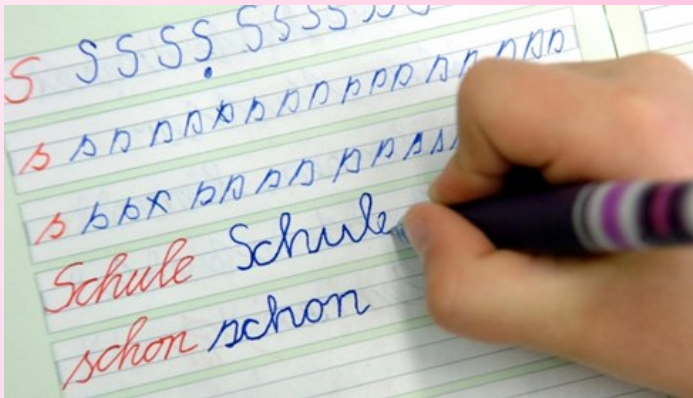 S S S S S S S S S S S
s s s s s s s s s s s s s s s s s
s s s s s s s s s s s s s
Schule Schule
schon schon